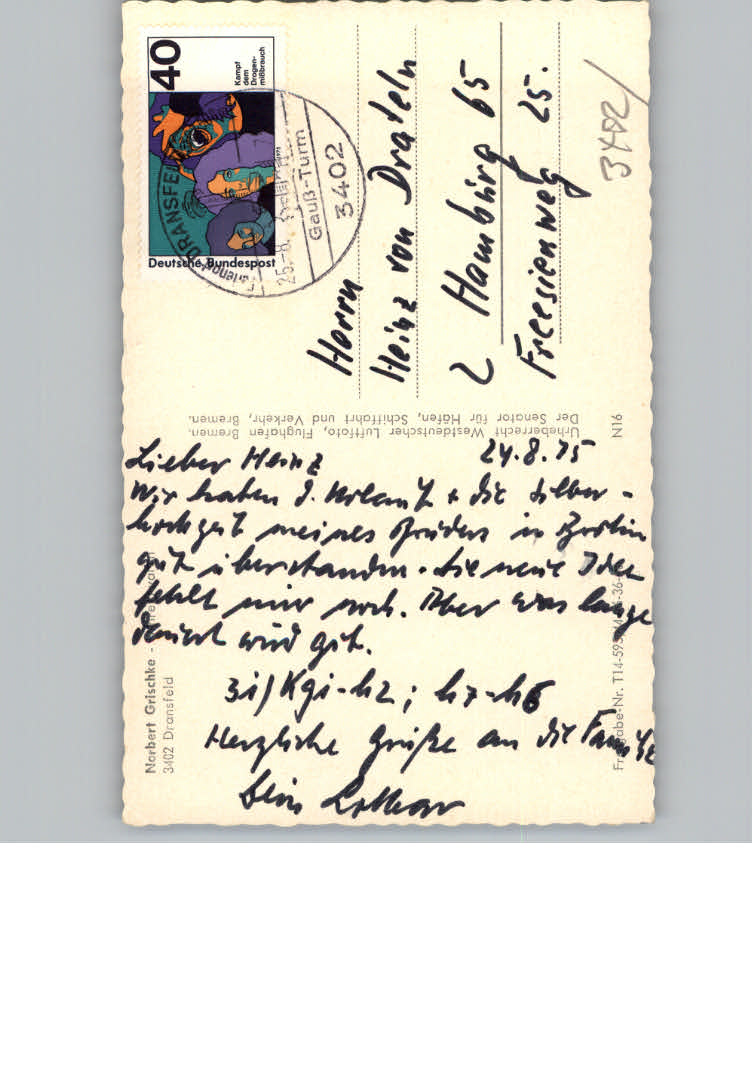 40
Kampf
dem
Drogen-
mißbrauch
Deutsche Bundespost
DRANSFELD
25.-8.
Gauß-Turm
3402
Herrn
Heinz von Drateln
2 Hamburg 65
Freesienweg 25.
3402/
Urheberrecht Westdeutscher Luftfoto, Flughafen Bremen.
Der Senator für Häfen, Schiffahrt und Verkehr, Bremen.
N16
Lieber Heinz 24.8.75
Wir haben d. Urlaub + die Silber-
hochzeit meines Bruders in Berlin
gut überstanden. Die neue Idee
fehlt mir noch. Aber was lange
dauert wird gut.
31) Kg1-h2; h7-h6
Herzliche Grüße an die Familie
Dein Lothar
Norbert Grischke -
3402 Dransfeld